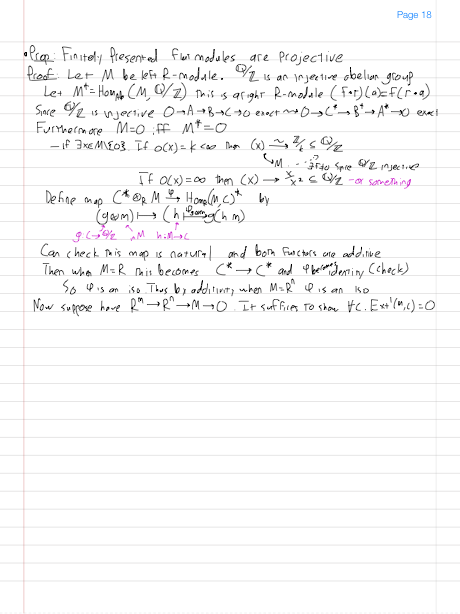 Page 18
• Prop: Finitely Presented Flat modules are projective
Proof: Let M be left R-module. ℚ/ℤ is an injective abelian group
Let M* = Hom_Ab (M, ℚ/ℤ) this is a right R-module (f·r)(a)=f(r·a)
Since ℚ/ℤ is injective 0→A→B→C→0 exact ⇝ 0→C*→B*→A*→0 exact
Furthermore M=0 iff M*=0
– if ∃x∈M\{0}. If o(x)=k<∞ then (x) ⥲ ℤ/k ≤ ℚ/ℤ
M ∃ Since ℚ/ℤ injective
If o(x)=∞ then (x) → ≤ ℚ/ℤ – or something
Define map C*⊗_R M →^φ Hom_R(M,C)* by
(g⊗m) ⟼ (h ⟼ g(h m))
g: C→ℚ/ℤ M h: M→C
Can check this map is natural and both functors are additive
Then when M=R this becomes C*→C* and φ becomes identity (check)
So φ is an iso. Thus by additivity when M=Rⁿ φ is an iso
Now suppose have Rᵐ→Rⁿ→M→0. It suffices to show ∀C. Ext¹(M,C)=0